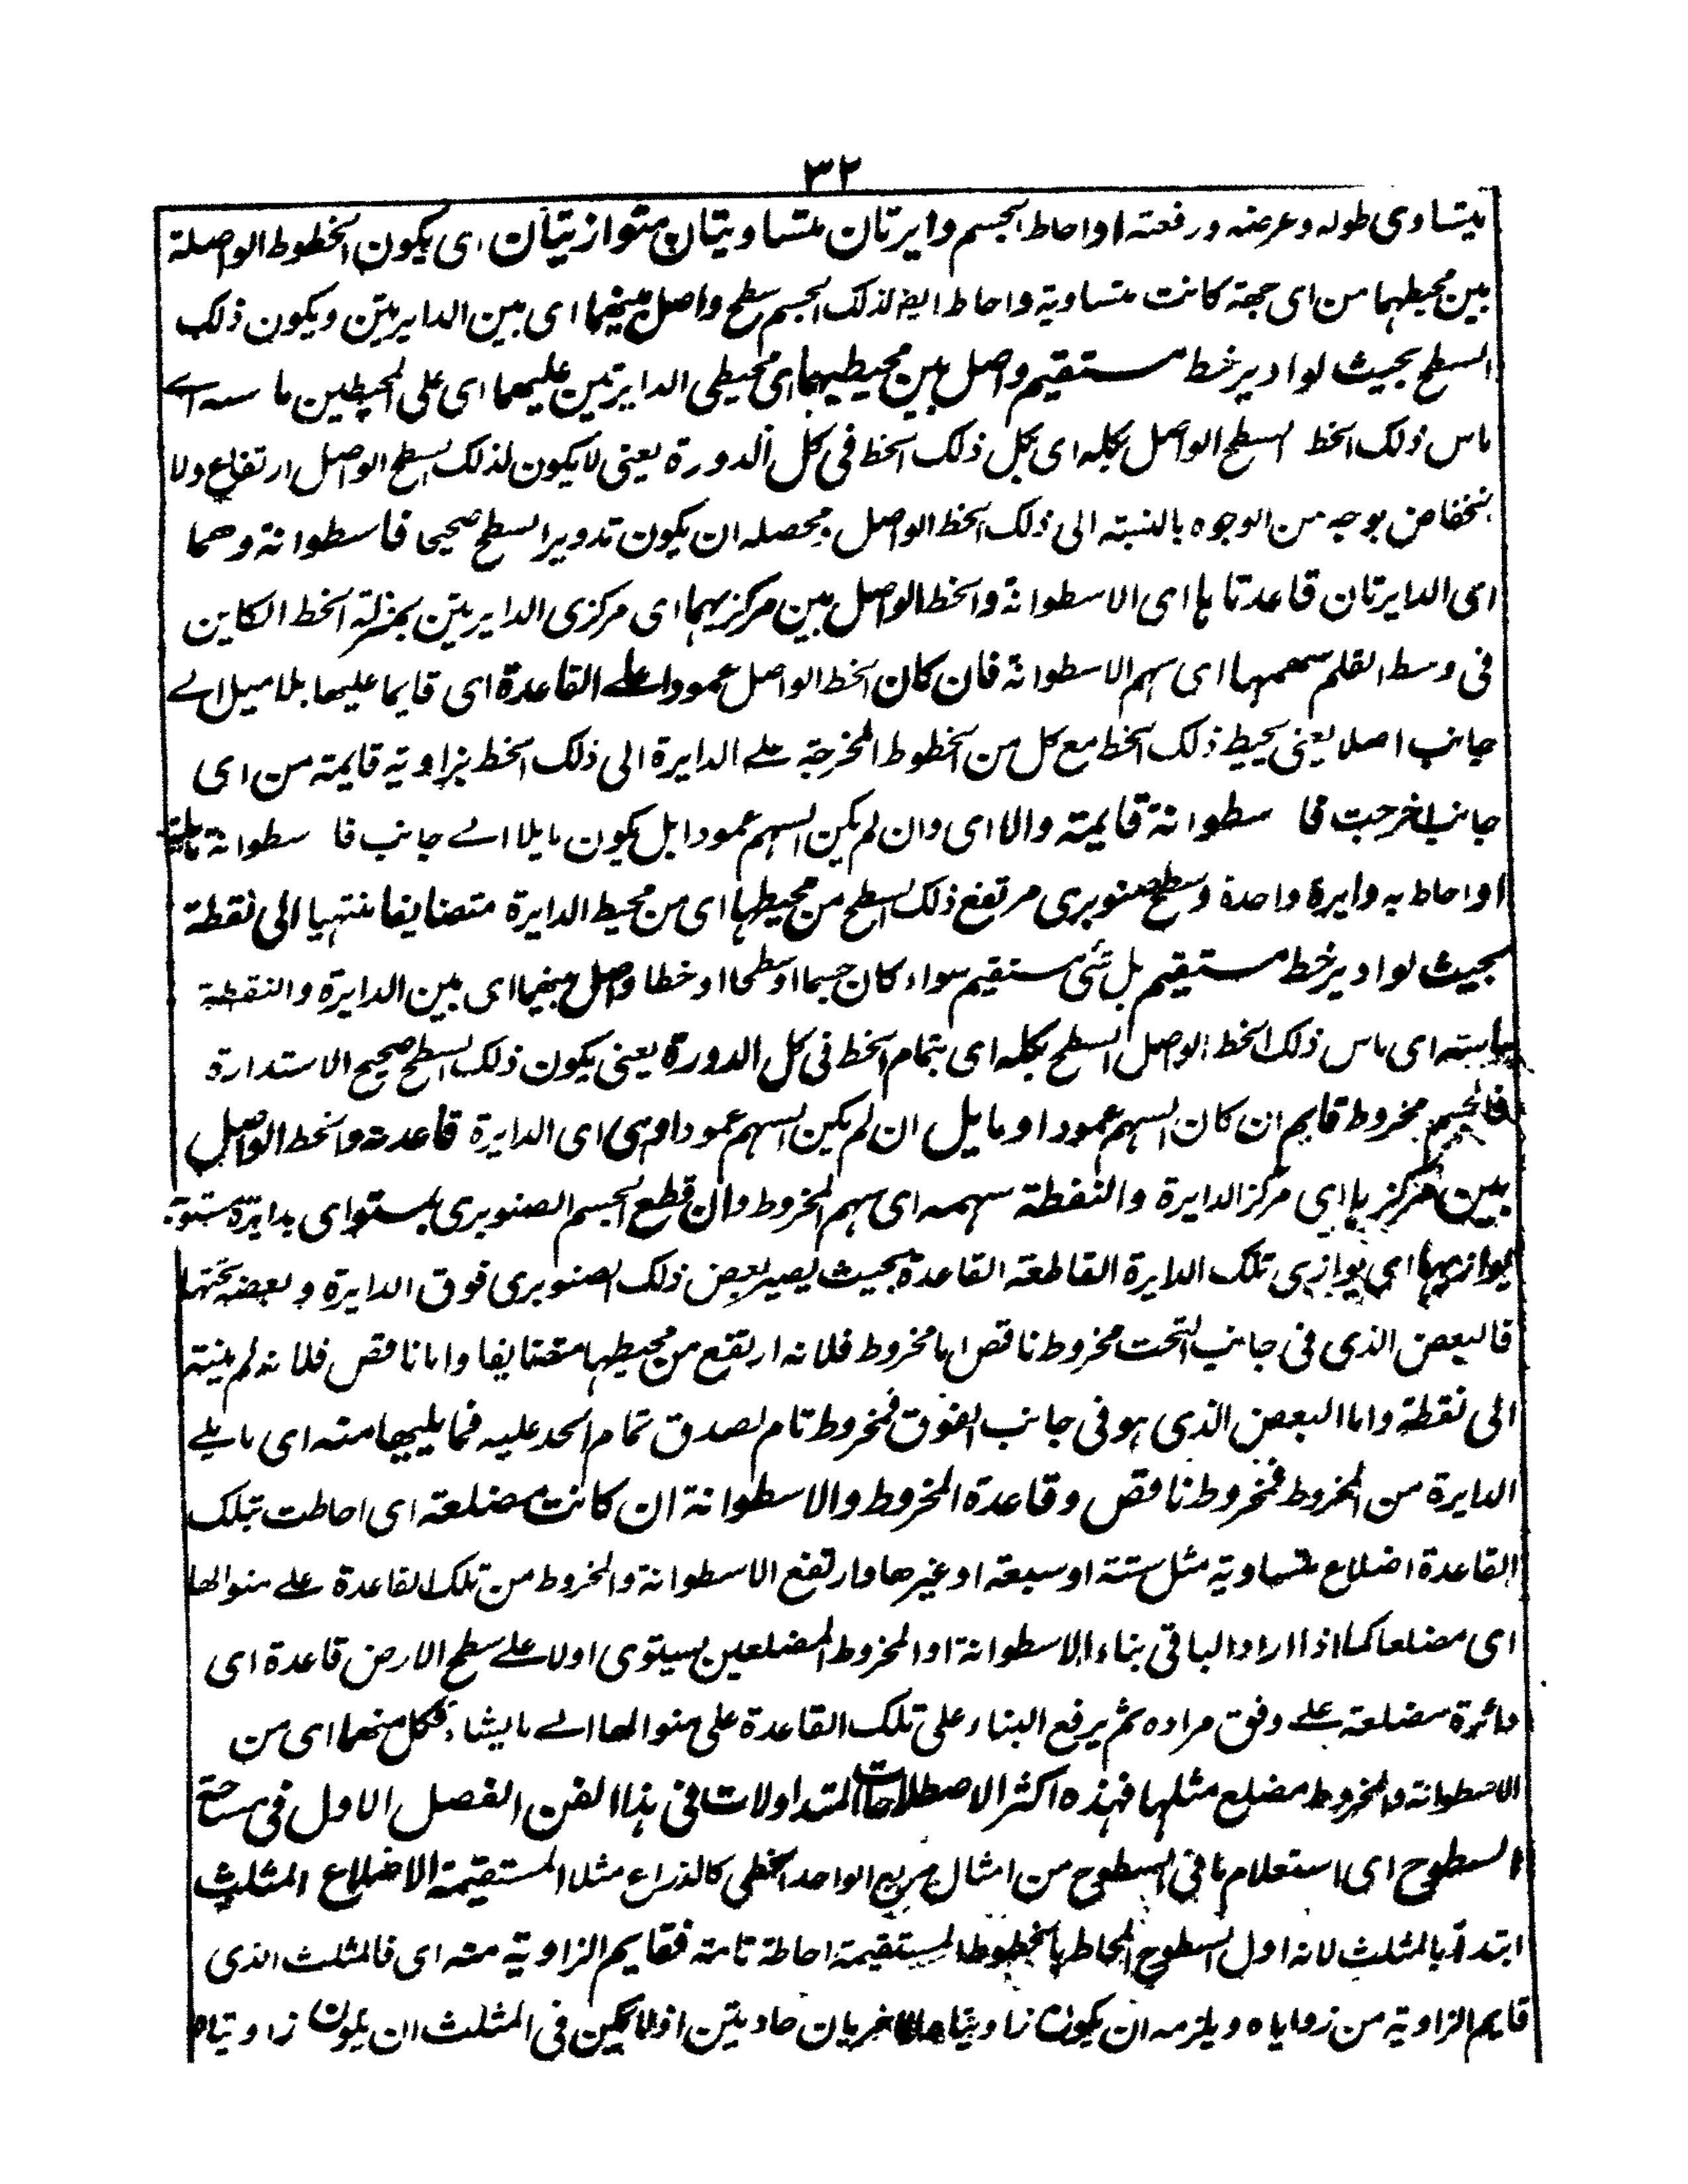 ٣٢
يتساوى طوله وعرضه ورفعته او احاط الجسم دايرتان متساويتان متوازيتان اى يكون الخطوط الواصلة
بين محيطهما من اى جهة كانت متساوية واحاط ايضا لذلك الجسم سطح واصل بينهما اى بين الدايرتين ويكون ذلك
السطح بحيث لو ادير خط مستقيم واصل بين محيطيهما اى محيطى الدايرتين عليهما اى على المحيطين ماسه اے
ماس ذلك الخط السطح الواصل بكله اى بكل ذلك الخط فى كل الدورة يعنى لا يكون لذلك السطح الواصل ارتفاع ولا
انخفاض بوجه من الوجوه بالنسبته الى ذلك الخط الواصل محصله ان يكون تدوير السطح صحيحا فاسطوانة وهما
اى الدايرتان قاعدتاها اى الاسطوانة والخط الواصل بين مركزيهما اى مركزى الدايرتين بمنزلة الخط الكاين
فى وسط القلم سهمها اى سهم الاسطوانة فان كان الخط الواصل عمودا على القاعدة اى قايما عليها بلا ميل اے
جانب اصلا يعنى يحيط ذلك الخط مع كل من الخطوط المخرجة علے الدايرة الى ذلك الخط بزاوية قايمته من اى
جانب اخرجت فا سطوانة قايمته والا اى وان لم يكن السهم عمودا بل يكون مايلا الے جانب فا سطوانة مايلة
او احاط به دايرة واحدة وسطح صنوبرى مرتفع ذلك السطح من محيطها اى من محيط الدايرة متضايقا منتهيا الى نقطة
بحيث لو ادير خط مستقيم بل شئ مستقيم سواء كان جسما او سطحا او خطا واصل بينهما اى بين الدايرة والنقطة
ماسته اى ماس ذلك الخط الواصل السطح بكله اى بتمام الخط فى كل الدورة يعنى يكون ذلك السطح صحيح الاستدارة
فالجسم مخروط قايم ان كان السهم عمودا او مايل ان لم يكن السهم عمودا وهى اى الدايرة قاعدته والخط الواصل
بين مركزها اى مركز الدايرة والنقطة سهمه اى سهم المخروط وان قطع الجسم الصنوبرى بمستو اى بدايرة مستوية
يوازيها اى يوازى تلك الدايرة القاطعة القاعدة بحيث يصير بعض ذلك الصنوبرى فوق الدايرة وبعضه تحتها
فالبعض الذى فى جانب التحت مخروط ناقص اما مخروط فلانه ارتفع من محيطها متضايقا واما ناقص فلانه لم ينته
الى نقطة واما البعض الذى هو فى جانب الفوق فمخروط تام لصدق تمام الحد عليه فما يليها منه اى ما يلے
الدايرة من المخروط فمخروط ناقص وقاعدة المخروط والاسطوانة ان كانت مضلعة اى احاطت بتلك
القاعدة اضلاع متساوية مثل ستة او سبعة او غيرها وارتفع الاسطوانة والمخروط من تلك القاعدة علے منوالها
اى مضلعا كما اذا اراد البانى بناء الاسطوانة او المخروط المضلعين يسيتوى اولا علے سطح الارض قاعدة اى
دائرة مضلعة علے وفق مراده ثم يرفع البناء على تلك القاعدة على منوالها الے ما يشاء فكل منهما اى من
الاسطوانة والمخروط مضلع مثلها فهذه اكثر الاصطلاحات المتداولات فى هذا الفن الفصل الاول فى مساحة
السطوح اى استعلام ما فى السطوح من امثال مربع الواحد الخطى كالذراع مثلا المستقيمة الاضلاع المثلث
ابتدأ بالمثلث لانه اول السطوح المحاط بالخطوط المستقيمة احاطة تامته فقايم الزاوية منه اى فالمثلث الذى
قايم الزاوية من زواياه ويلزمه ان يكون زاويتاه الاخريان حاديتين اذ لا يمكن فى المثلث ان يكون زاويتاه